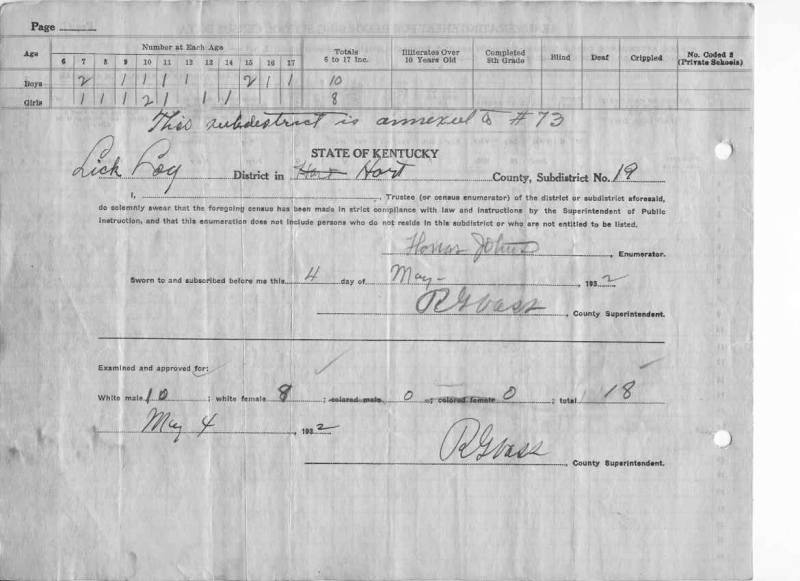 Page
Age Number at Each Age Totals 6 to 17 Inc. Illiterates Over 10 Years Old Completed 8th Grade Blind Deaf Crippled No. Coded 2 (Private Schools)
6 7 8 9 10 11 12 13 14 15 16 17
Boys 2 1 1 1 1 2 1 1 10
Girls 1 1 1 2 1 1 1 8
This subdistrict is annexed to #73
STATE OF KENTUCKY
Lick Log District in Hart Hart County, Subdistrict No. 19
I, , Trustee (or census enumerator) of the district or subdistrict aforesaid,
do solemnly swear that the foregoing census has been made in strict compliance with law and instructions by the Superintendent of Public
Instruction, and that this enumeration does not include persons who do not reside in this subdistrict or who are not entitled to be listed.
Johns , Enumerator.
Sworn to and subscribed before me this 4 day of May , 1932
, County Superintendent.
Examined and approved for:
White male 10 ; white female 8 ; colored male 0 ; colored female 0 ; total 18
May 4 , 1932
, County Superintendent.